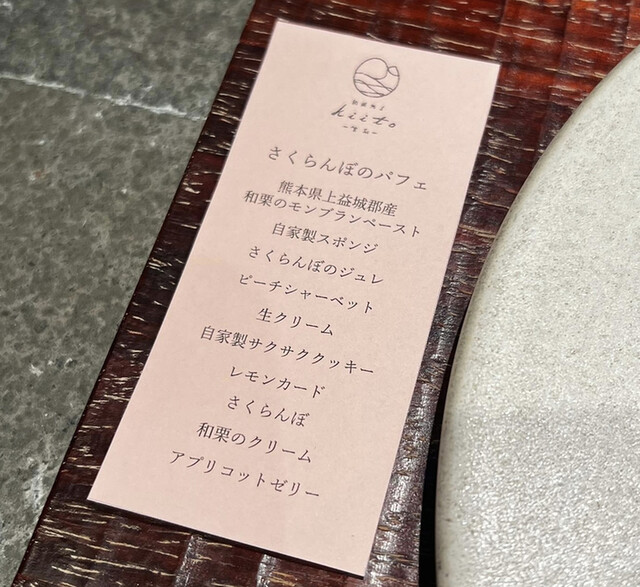 kiito
-生糸-
さくらんぼのパフェ
熊本県上益城郡産
和栗のモンブランペースト
自家製スポンジ
さくらんぼのジュレ
ピーチシャーベット
生クリーム
自家製サクサククッキー
レモンカード
さくらんぼ
和栗のクリーム
アプリコットゼリー